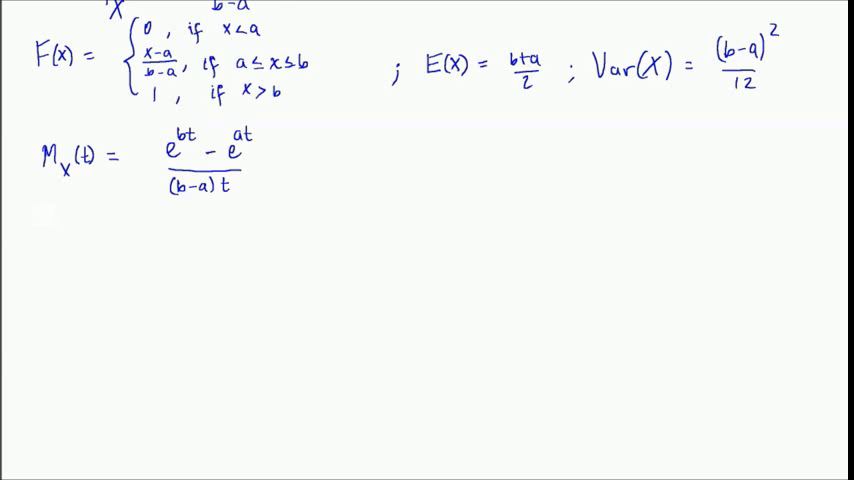 X b-a
F(x) = { 0, if x<a
x-a/b-a, if a≤x≤b ; E(X) = b+a/2 ; Var(X) = (b-a)²/12
1, if x>b
M_X(t) = e^bt - e^at / (b-a)t